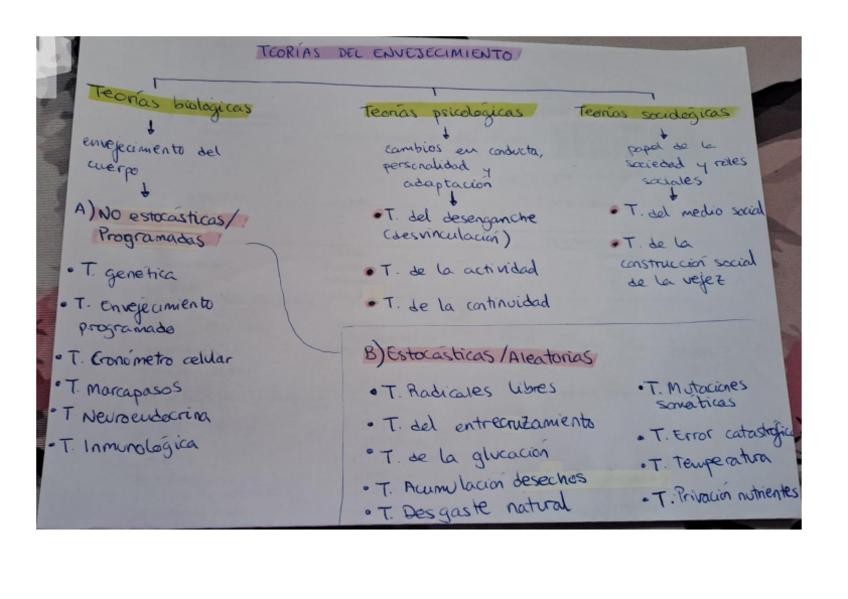 TEORÍAS DEL ENVEJECIMIENTO
Teorías biológicas
envejecimiento del
cuerpo
A) No estocásticas/
Programadas
• T. genética
• T. Envejecimiento
programado
• T. Cronómetro celular
• T. Marcapasos
• T Neuroendocrina
• T. Inmunológica
Teorías psicológicas
cambios en conducta,
personalidad y
adaptación
• T. del desenganche
(desvinculación)
• T. de la actividad
• T. de la continuidad
Teorías sociológicas
papel de la
sociedad y roles
sociales
• T. del medio social
• T. de la
construcción social
de la vejez
B) Estocásticas/Aleatorias
• T. Radicales libres
• T. del entrecruzamiento
• T. de la glucación
• T. Acumulación desechos
• T. Desgaste natural
• T. Mutaciones
somáticas
• T. Error catastrófic
• T. Temperatura
• T. Privación nutrientes